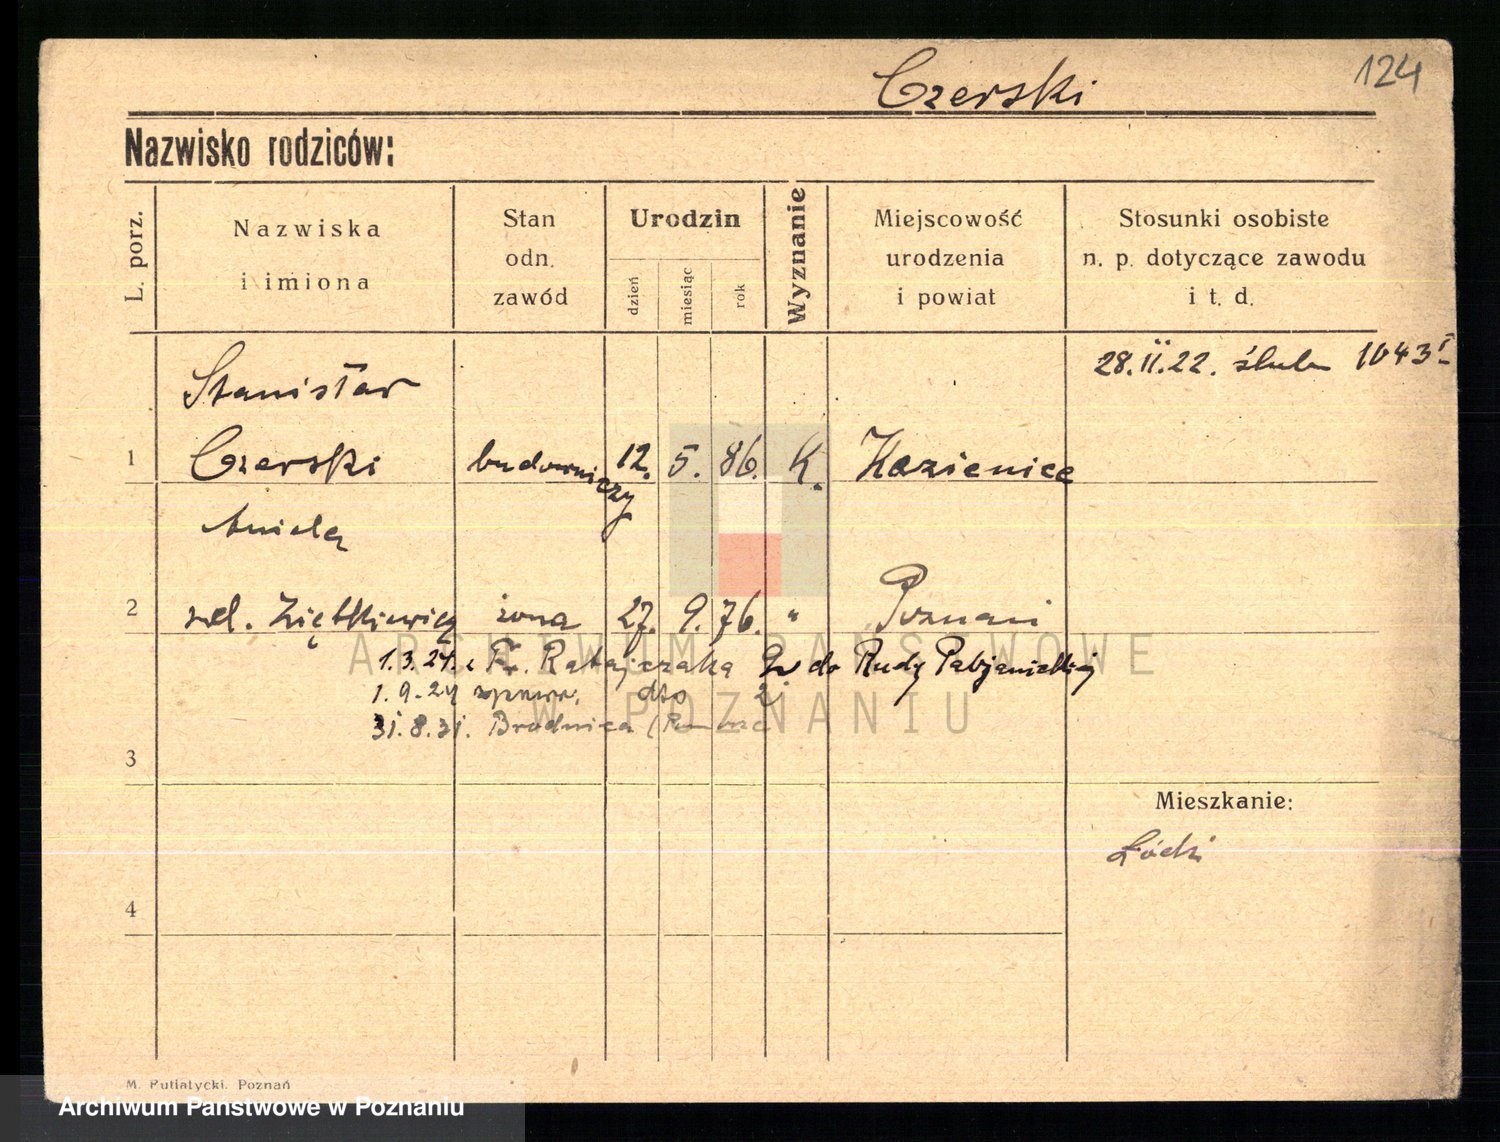 Czerski
124
Nazwisko rodziców:
L. porz.
Nazwiska
i imiona
Stan
odn.
zawód
Urodzin
dzień
miesiąc
rok
Wyznanie
Miejscowość
urodzenia
i powiat
Stosunki osobiste
n. p. dotyczące zawodu
i t. d.
28.II.22. ślub 1043 I
Stanisław
1 Czerski budowniczy 12. 5. 86. K. Kozienice
Aniela
2 żona 27. 9. 76. " Poznań
1.3.24. Fr. Ratajczaka do Rudy Pabjanickiej
1.9.24 dto 2.
31.8.31. Brodnica
3
Mieszkanie:
Łódź
4
M. Putiatycki, Poznań
ARCHIWUM PAŃSTWOWE
W POZNANIU
Archiwum Państwowe w Poznaniu